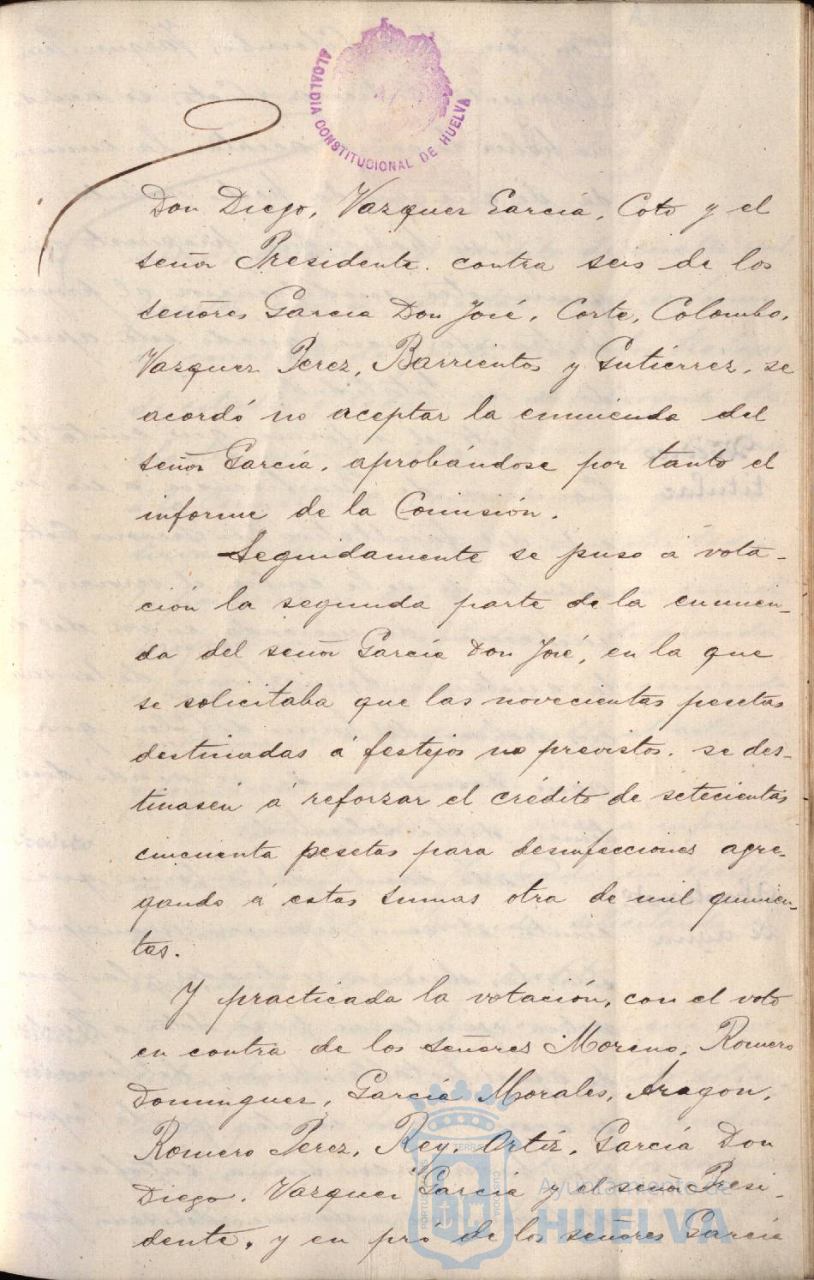 ALCALDIA CONSTITUCIONAL DE HUELVA
Don Diego, Vazquez García, Coto y el
señor Presidente. contra seis de los
señores García Don José, Corte, Colombo,
Vazquez Perez, Barrientos y Gutiérrez, se
acordó no aceptar la enmienda del
señor García, aprobándose por tanto el
informe de la Comisión.
Seguidamente se puso á vota-
ción la segunda parte de la enmien-
da del señor García Don José, en la que
se solicitaba que las novecientas pesetas
destinadas á festejos no previstos. se des-
tinasen á reforzar el crédito de setecientas
cincuenta pesetas para desinfecciones agre-
gando á estas sumas otra de mil quinien-
tas.
Y practicada la votación, con el voto
en contra de los señores Moreno, Romero
Dominguez, García Morales, Aragon,
Romero Perez, Rey, Ortiz, García Don
Diego, Vazquez García y el señor Presi-
dente, y en pró de los señores García
Ayuntamiento de
HUELVA